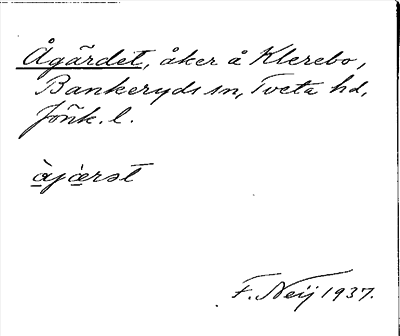 Ågärdet, åker å Klerebo,
Bankeryds sn, Tveta hd,
Jönk. l.
àj̀ærət
F. Neij 1937.